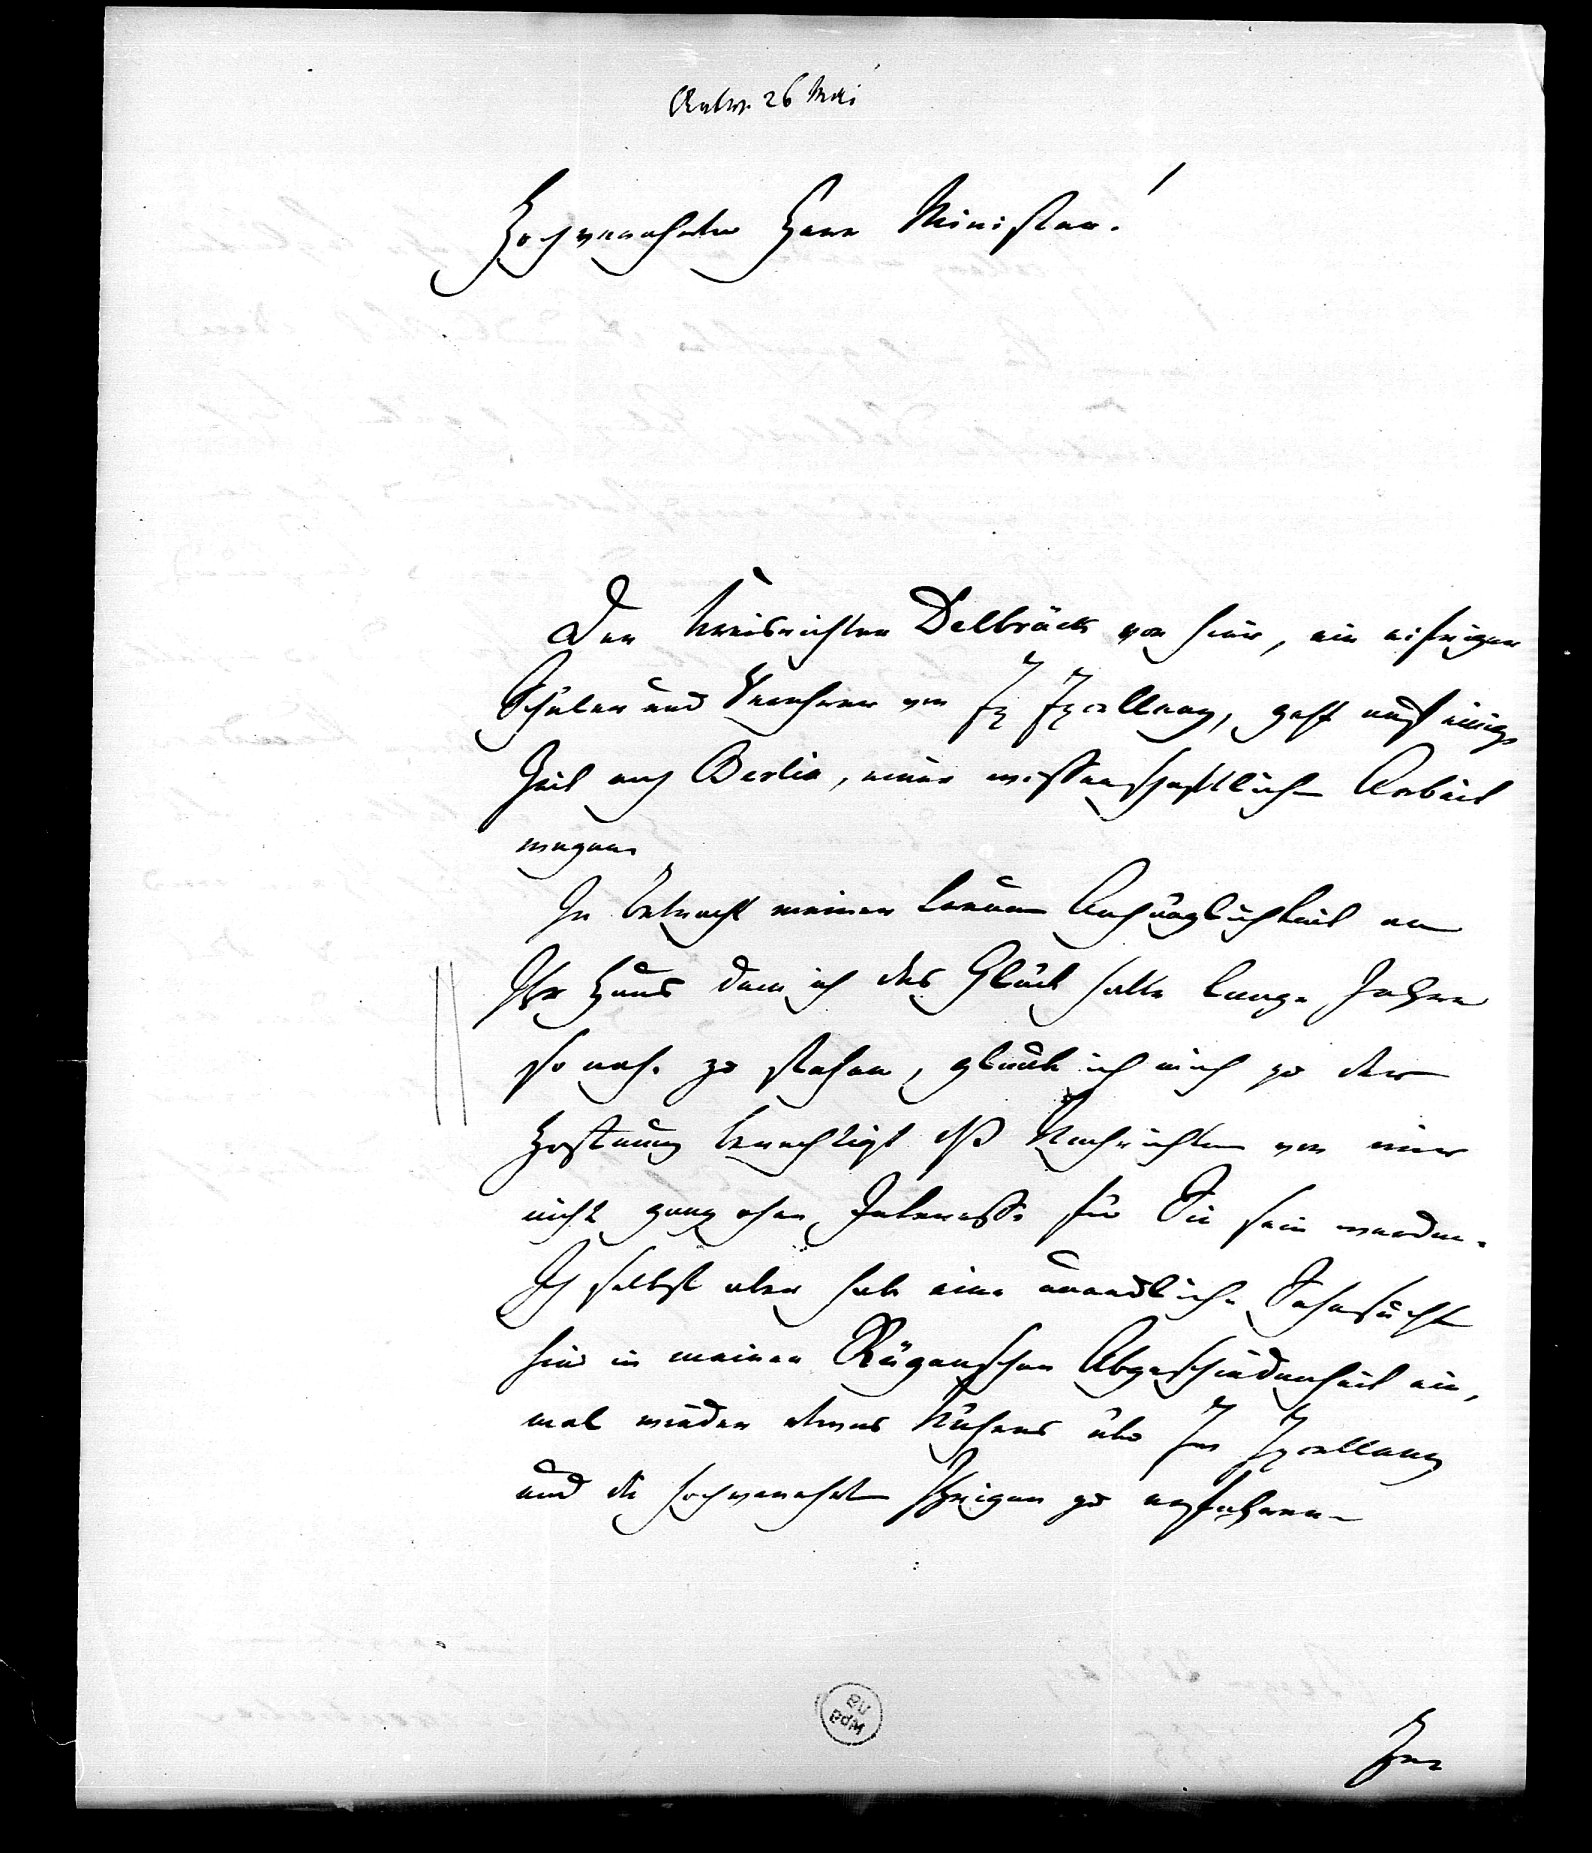 Antw. 26 Mai
Hochverehrter Herr Minister!
Der Kreisrichter Delbrück von hier, ein eifriger
Schüler und Verehrer von Ew Excellenz, geht auf einige
Zeit nach Berlin, einer wissenschaftlichen Arbeit
wegen.
In Betracht meiner treuen Anhänglichkeit an
Ihr Haus dem ich das Glück hatte lange Jahre
so nahe zu stehen, glaube ich mich zu der
Hoffnung berechtigt daß Nachrichten von mir
nicht ganz ohne Interesse für Sie sein werden.
Ich selbst aber habe eine unendliche Sehnsucht
hier in meiner Rügenschen Abgeschiedenheit ein,
mal wieder etwas Näheres über Eur Excellenz
und die hochverehrten Ihrigen zu erfahren.
BU